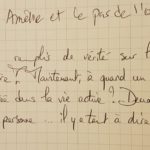 Amélie et le pas de l'o
remplis de vérité sur
Maintenant, à quand un
dans la vie active ? Deman
personne ... il y a tant à dire